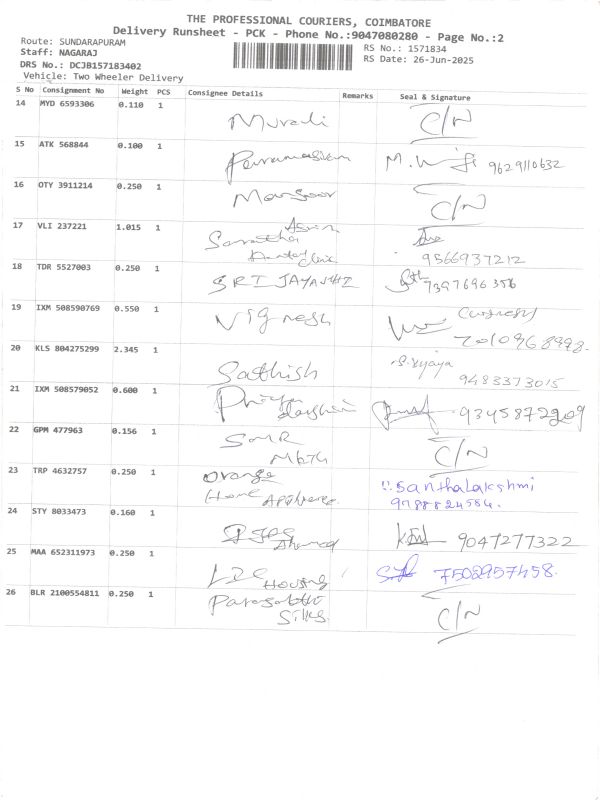 THE PROFESSIONAL COURIERS, COIMBATORE
Delivery Runsheet - PCK - Phone No.:9047080280 - Page No.:2
Route: SUNDARAPURAM
RS No.: 1571834
Staff: NAGARAJ
RS Date: 26-Jun-2025
DRS No.: DCJB157183402
Vehicle: Two Wheeler Delivery
S No Consignment No Weight PCS Consignee Details Remarks Seal & Signature
14 MYD 6593306 0.110 1 Murali C/N
15 ATK 568844 0.100 1 9629110632
16 OTY 3911214 0.250 1 Mansoor C/N
17 VLI 237221 1.015 1
9566937212
18 TDR 5527003 0.250 1 SRI JAYASHI
7397696356
19 IXM 508590769 0.550 1 Vignesh
7010968998.
20 KLS 804275299 2.345 1 Sathish S. Vijaya
9483373015
21 IXM 508579052 0.600 1 Priya
9345872909
22 GPM 477963 0.156 1 SMR C/N
23 TRP 4632757 0.250 1 Orange Santhalakshmi
Home Appliance 9788824584.
24 STY 8033473 0.160 1 Ahamed 9047277322
25 MAA 652311973 0.250 1 LIC Housing 7502957458.
26 BLR 2100554811 0.250 1 C/N
Silks